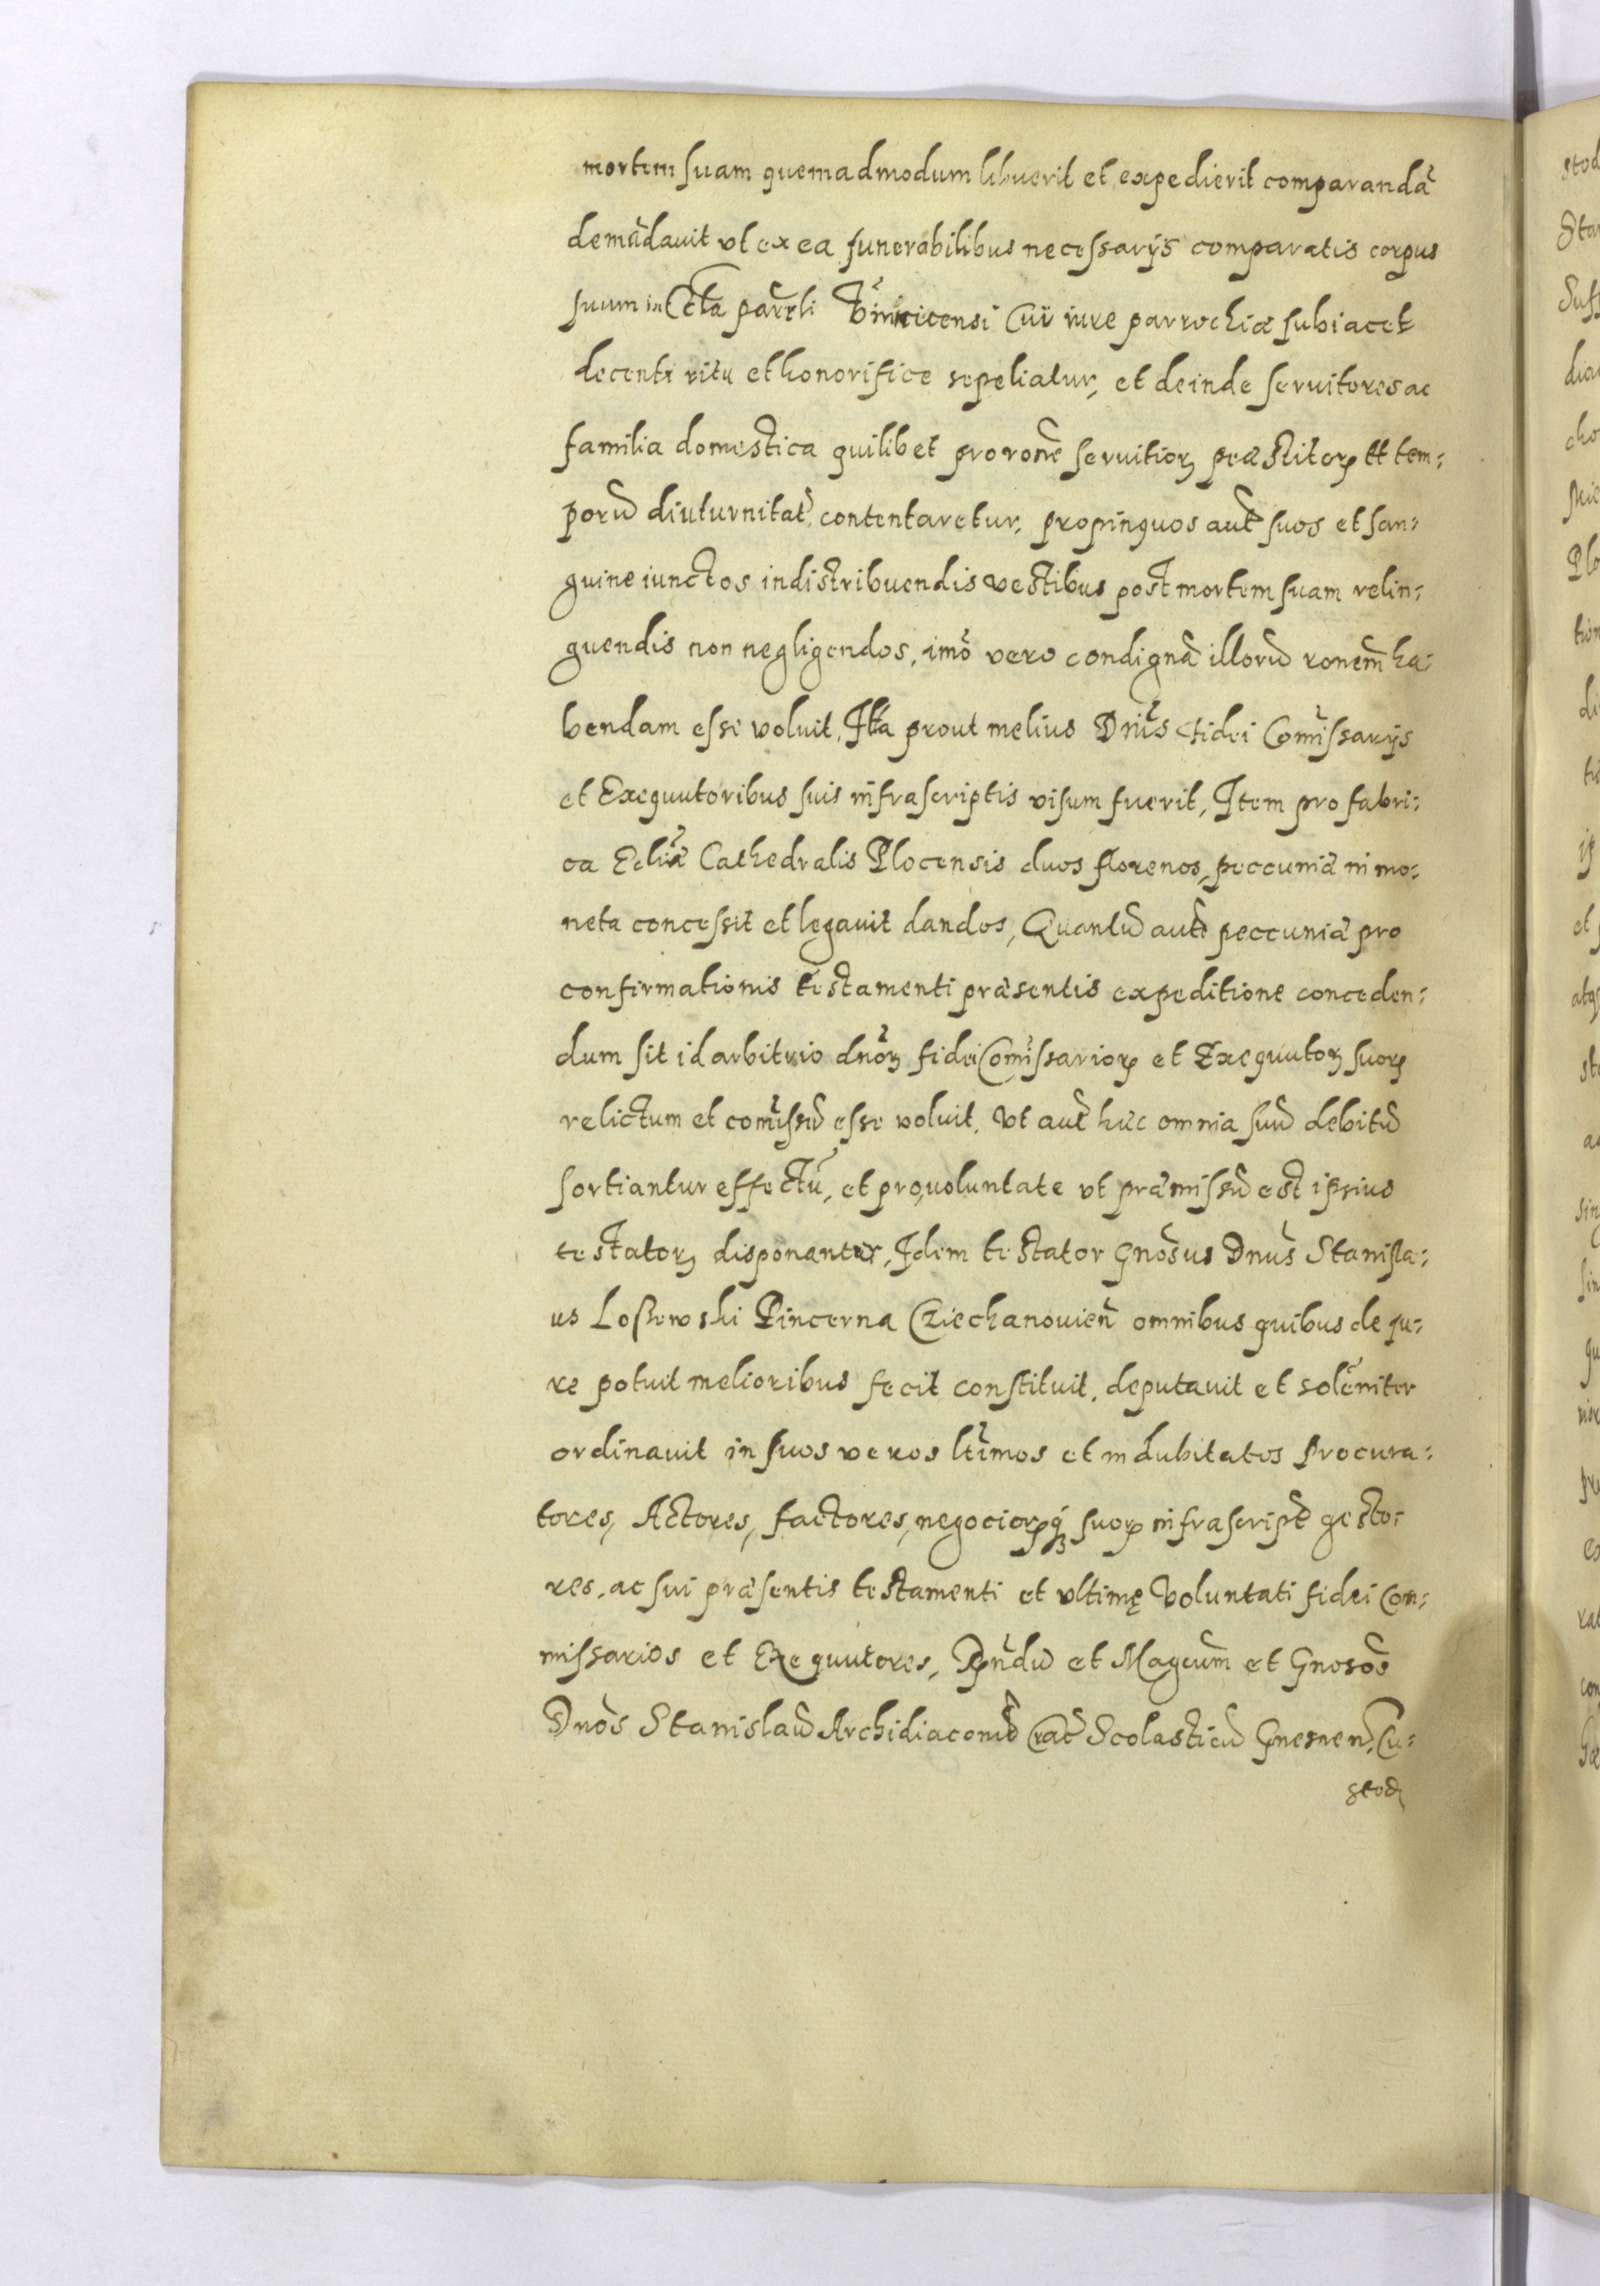 mortem suam quemadmodum libuerit et expedierit comparandã
demãdauit vt ex ea funerabilibus necessarÿs comparatis corpus
suum in Ecclã parrli Viniicensi Cui iure parrochiæ subiacet
decenti ritu et honorifice sepeliatur, et deinde seruitores ac
familia domestica quilibet pro rone seruitior. præstitor. et tem:
porũ diuturnitate contentaretur, propinquos aut suos et san:
guine iunctos in distribuendis vestibus post mortem suam relin:
quendis non negligendos, imo vero condignã illorũ ronem ha:
bendam esse voluit, Ita prout melius Dnis fidei Comissarÿs
et Exequutoribus suis infrascriptis visum fuerit, Item pro fabri:
ca Ecliæ Cathedralis Plocensis duos florenos, peccuniæ in mo:
neta concessit et legauit dandos, Quantũ aut peccuniæ pro
confirmationis testamenti præsentis expeditione conceden:
dum sit id arbitrio dnor. fidei Comissarior. et Exequutor. suor.
relictum et comissũ esse voluit. Vt aut hæc omnia suũ debitũ
sortiantur effectũ, et pro voluntate vt præmissũ est ipsius
testator. disponantur, Idem testator Gnosus Dnus Stanisla:
us Loszewski Pincerna Cziechanouien omnibus quibus de iu:
re potuit melioribus fecit constituit, deputauit et solẽniter
ordinauit in suos veros ltimos et indubitatos Procura:
tores, Actores, factores, negociorq; suor. infrascript gesto:
res, ac sui præsentis testamenti et vltimę voluntati fidei Com:
missarios et Exequutores, Rndũ et Magcum et Gnosos
Dnos Stanislaũ Archidiaconũ Crac Scolasticũ Gnesnen, Cu:
stod